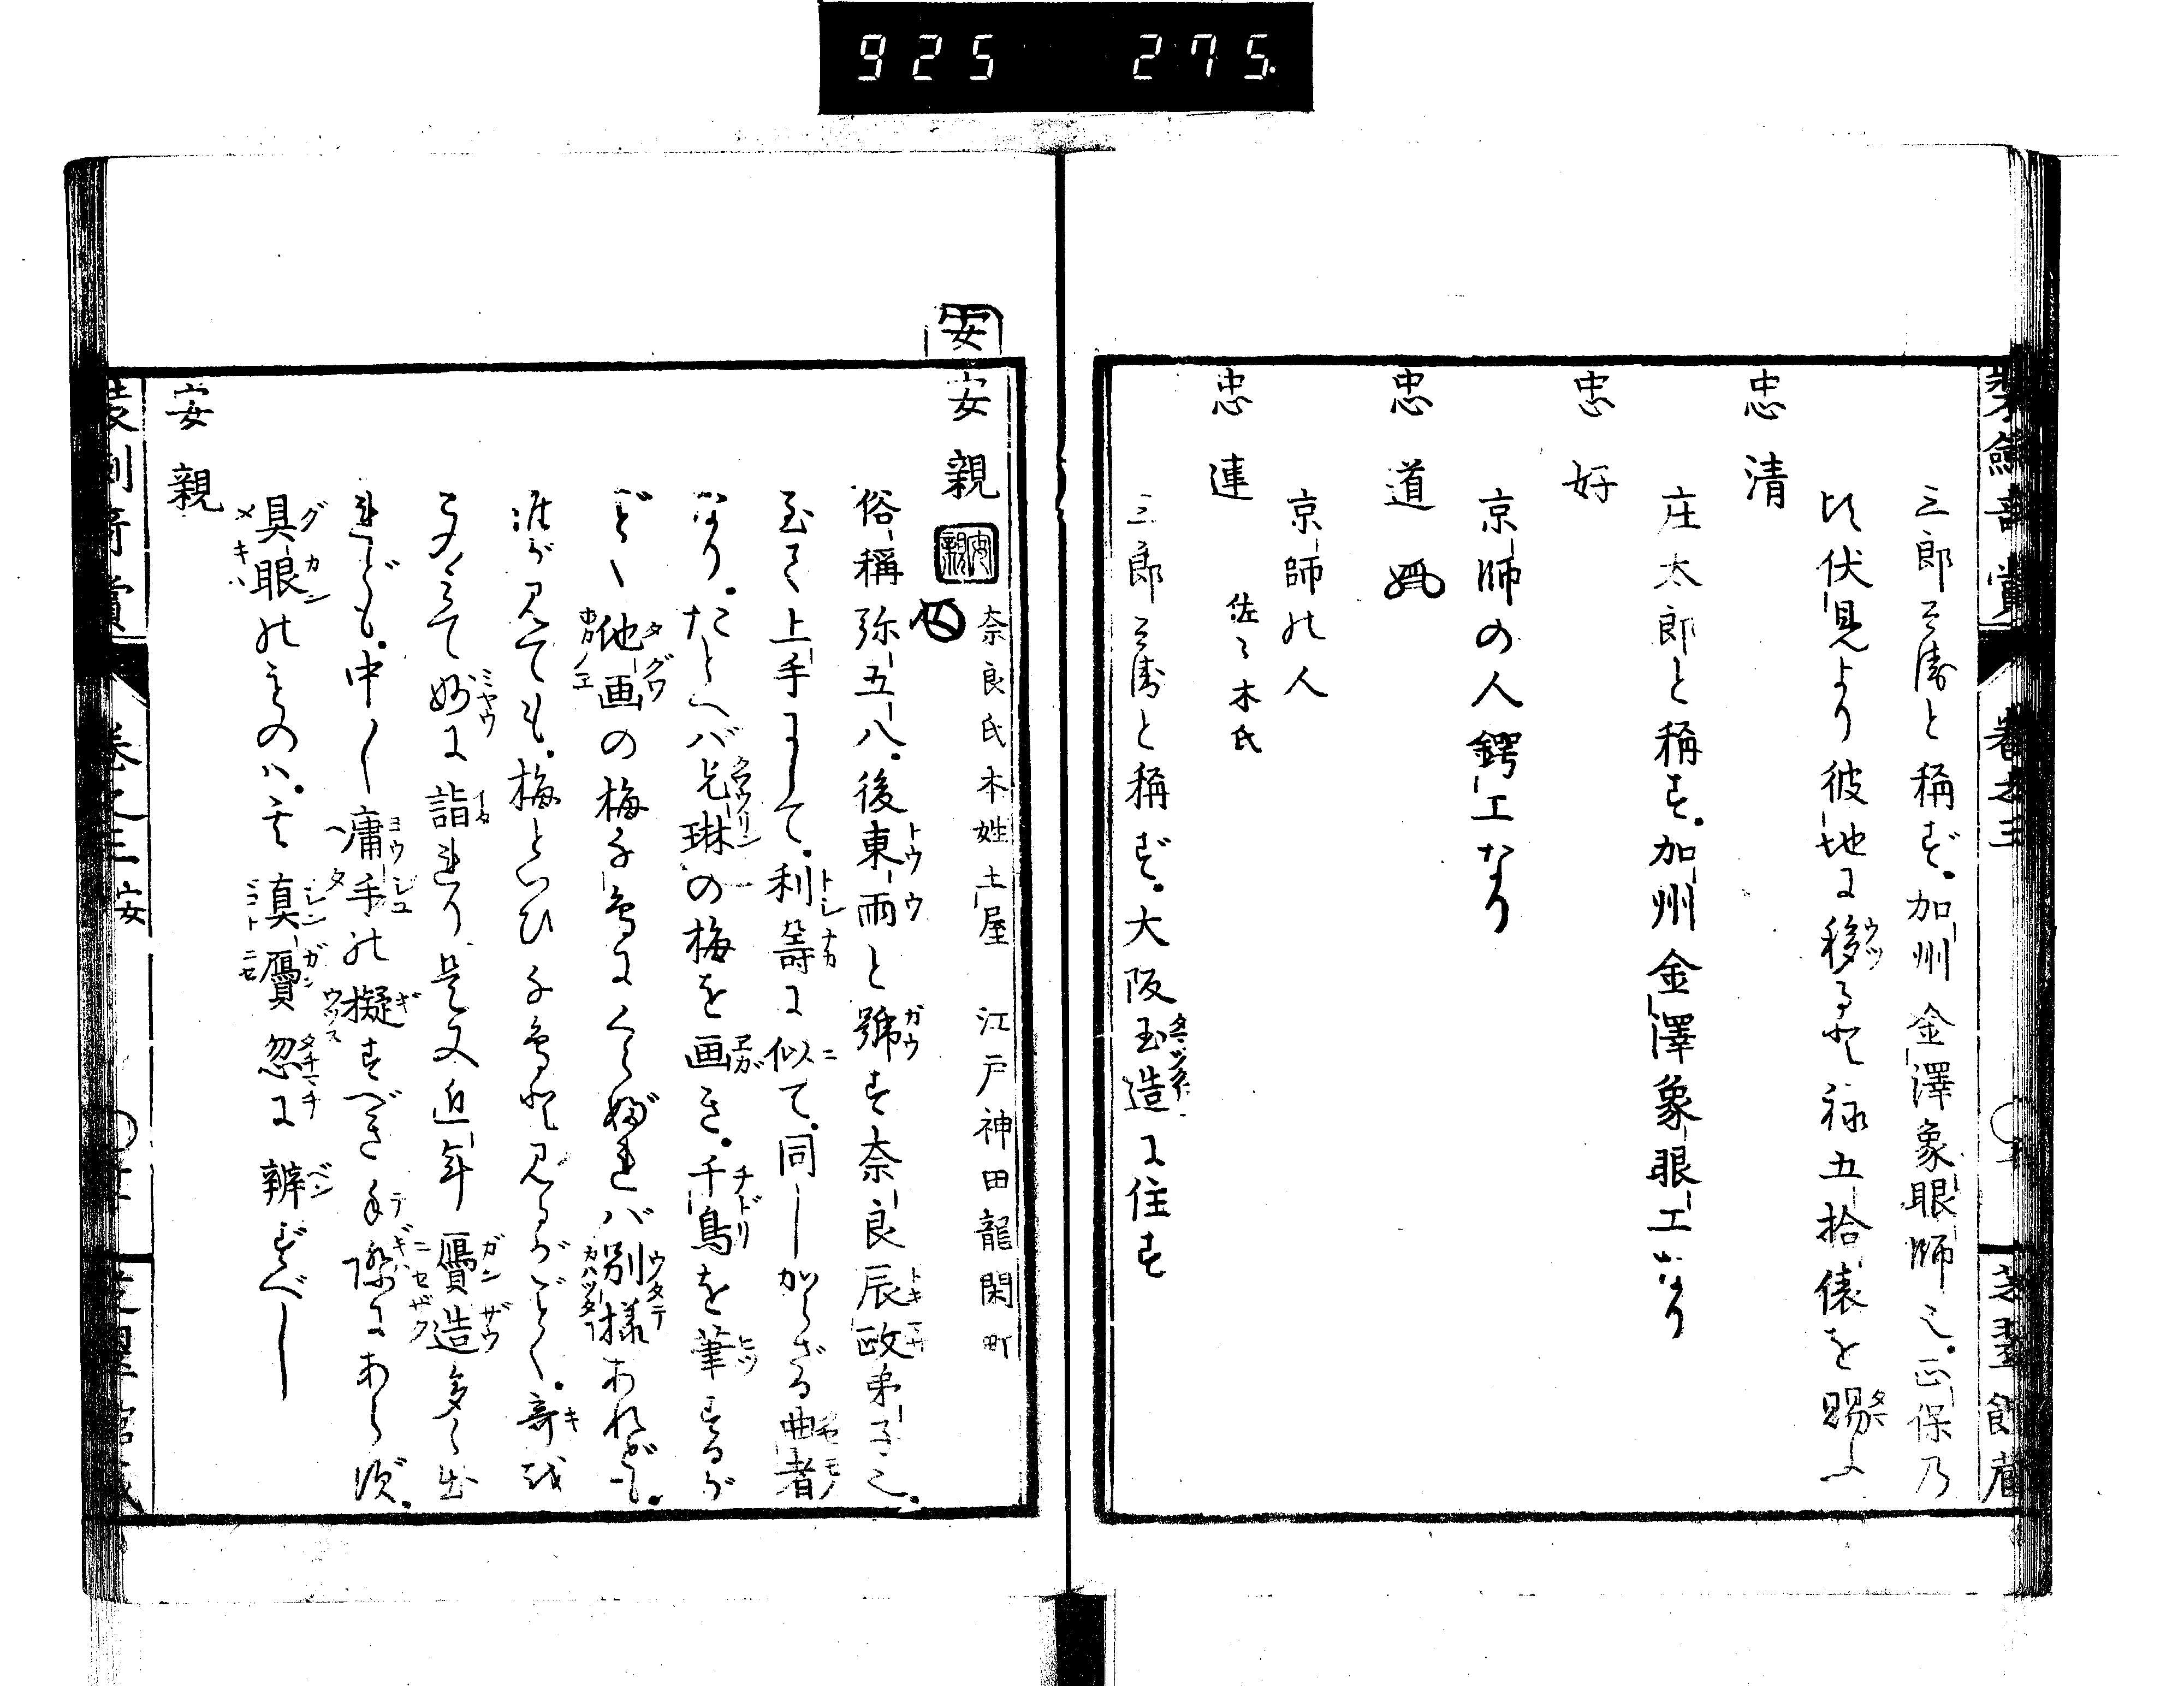 925 275.
装劔竒賞 卷之三
三郎兵衛と稱ず。加州金澤象眼師也。正保乃
比伏見より彼地に移る其禄五拾俵を賜ふ
忠清
庄太郎と稱す。加州金澤象眼工なり
忠好
京師の人鍔工なり
忠道
京師の人
忠連 佐々木氏
三郎兵衛と稱ず。大阪玉造に住す
安
安親 安親 奈良氏本姓土屋 江戸神田龍閑町
俗稱弥五八。後東雨と號す奈良辰政弟子也。
至て上手にして。利壽に似て。同じからざる曲者
なり。たとへバ光琳の梅を画き。千鳥を筆するが
ごとく他画の梅千鳥にくらぶれバ別様あれども。
誰が見ても。梅といひ千鳥と見るがごとく。竒
妙に詣れり是又近年贋造多く出
れども。中〱庸手の擬すべき手際にあらず。
具眼のものハ。其真贋忽に辨ずべし
安親
装劔竒賞 卷之三 安